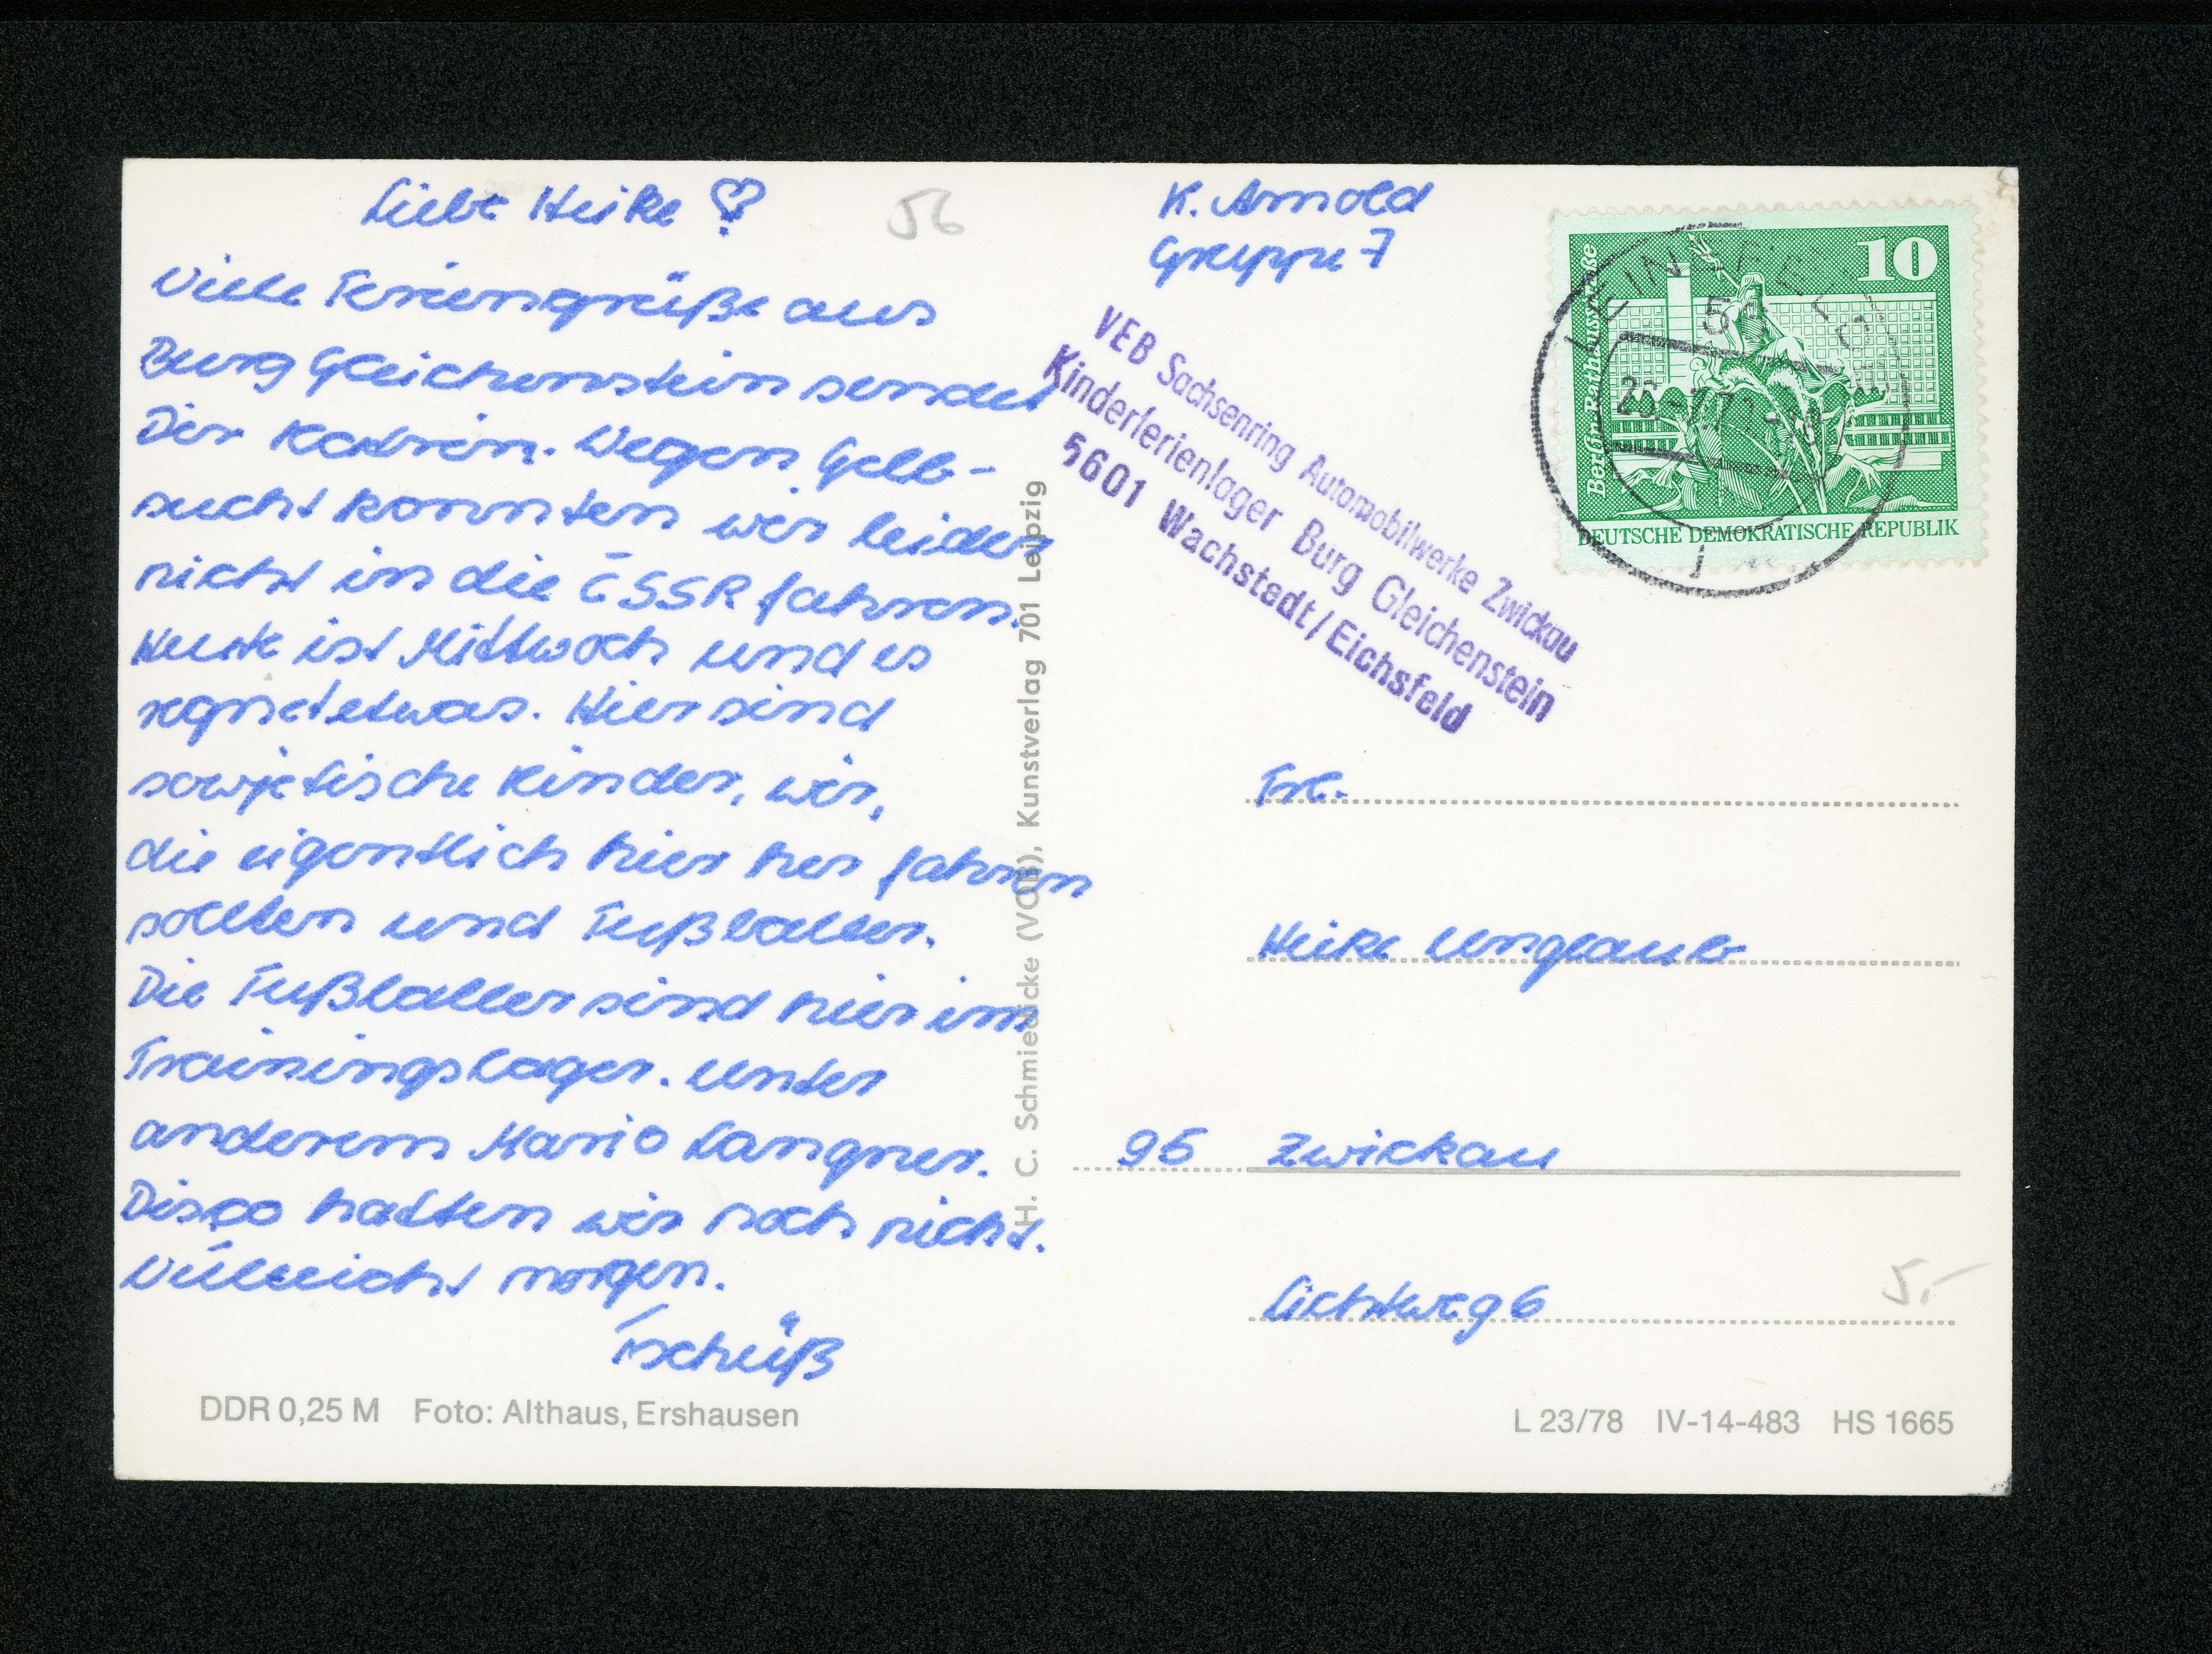 Liebe Heike
56
Viele Feriengrüße aus
Burg Gleichenstein sendet
Dir Katrin. Wegen Gelb-
sucht konnten wir leider
nicht in die ČSSR fahren.
Heute ist Mittwoch und es
regnet etwas. Hier sind
sowjetische Kinder, wir,
die eigentlich hier her fahren
sollten und Fußballer.
Die Fußballer sind hier im
Trainingslager. Unter
anderem Mario Langner.
Disco hatten wir noch nicht.
Vielleicht morgen.
Tschüß
DDR 0,25 M Foto: Althaus, Ershausen
H. C. Schmiedicke (VOB), Kunstverlag 701 Leipzig
K. Arnold
Gruppe 7
VEB Sachsenring Automobilwerke Zwickau
Kinderferienlager Burg Gleichenstein
5601 Wachstedt/Eichsfeld
10
Berlin, Rathausstraße
DEUTSCHE DEMOKRATISCHE REPUBLIK
LEINEFELDE
Frl.
Heike Unglaub
95 Zwickau
Lichtweg 6
5,-
L 23/78 IV-14-483 HS 1665